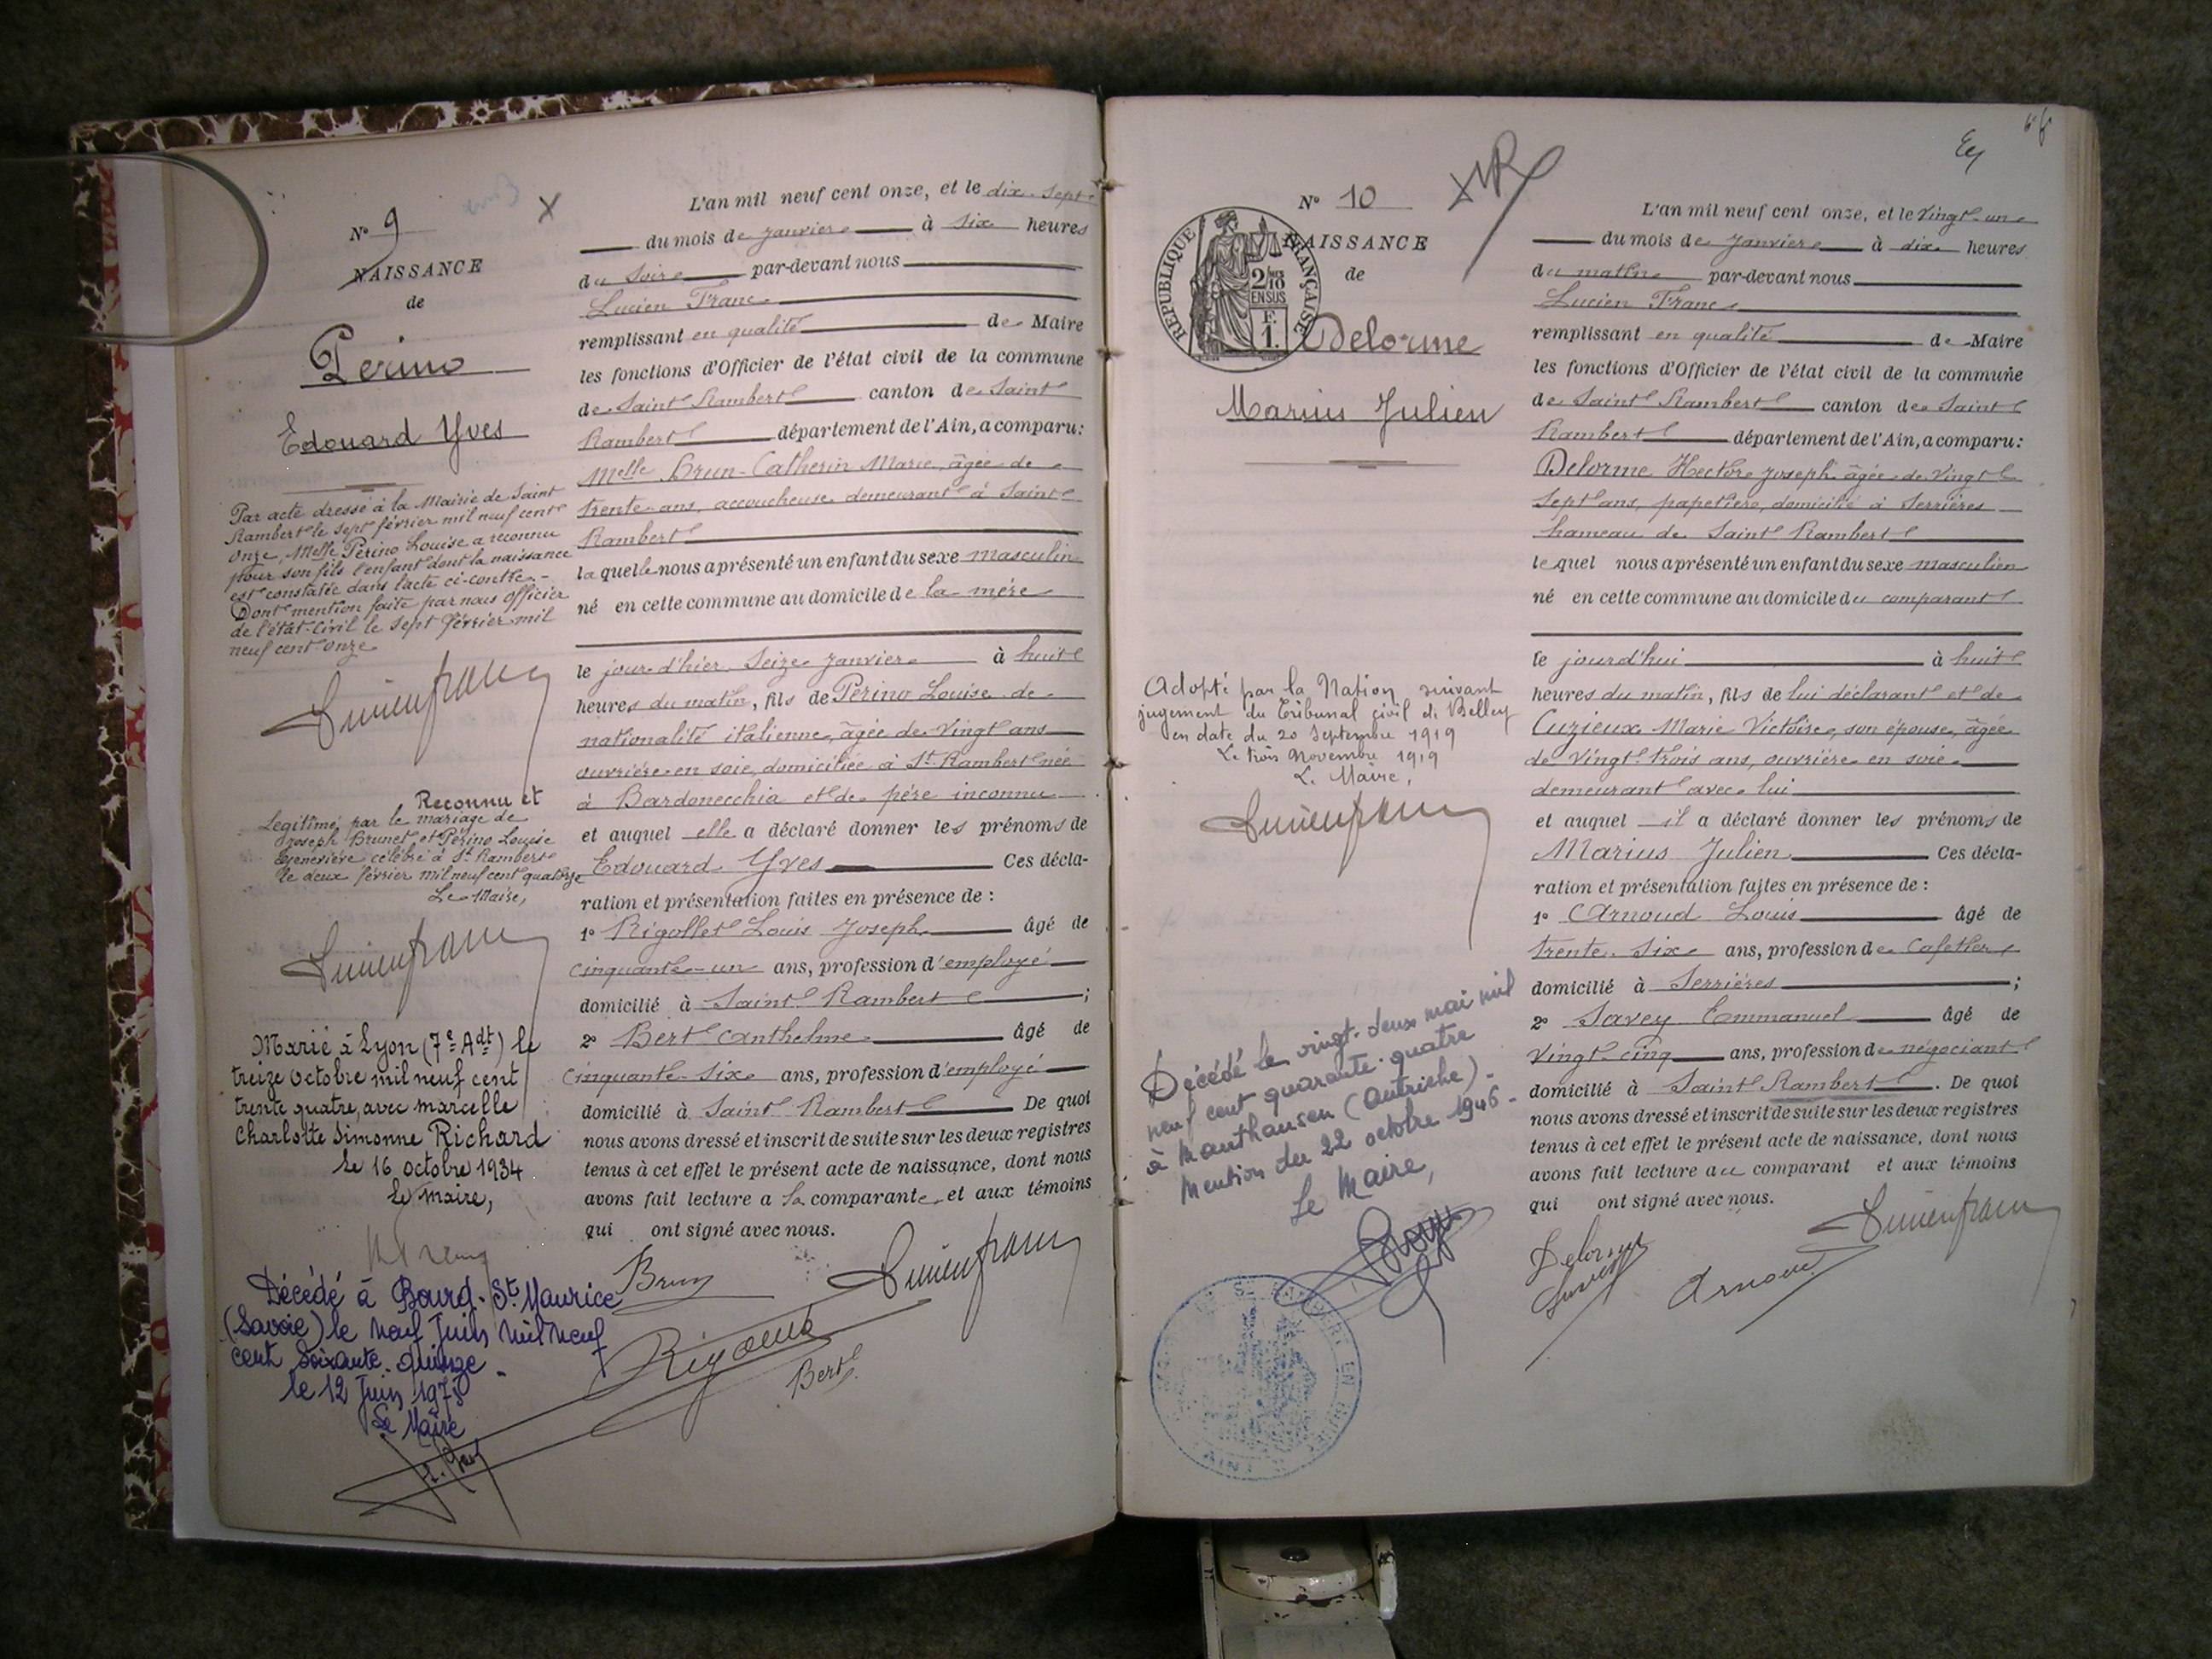 N° 9
NAISSANCE
de
Perino
Edouard Yves
Par acte dressé à la Mairie de Saint
Rambert le sept février mil neuf cent
onze, Melle Périno Louise a reconnu
pour son fils l'enfant dont la naissance
est constatée dans l'acte ci-contre.-
Dont mention faite par nous officier
de l'état-civil le sept février mil
neuf cent onze
Lucien Franc
Reconnu et
Légitimé par le mariage de
Joseph Brunet et Périno Louise
Geneviève célébré à St Rambert
le deux février mil neuf cent quatorze
Le Maire,
Lucien Franc
Marié à Lyon (7e Adt) le
treize octobre mil neuf cent
trente quatre, avec Marcelle
Charlotte Simonne Richard
le 16 octobre 1934
Le Maire,
Décédé à Bourg-St Maurice
(Savoie) le neuf Juin mil neuf
cent soixante-quinze -
le 12 Juin 1975
Le Maire
L'an mil neuf cent onze, et le dix-sept
du mois de janvier à six heures
du soir par-devant nous
Lucien Franc
remplissant en qualité de Maire
les fonctions d'Officier de l'état civil de la commune
de Saint Rambert canton de Saint
Rambert département de l'Ain, a comparu:
Melle Brun-Catherin Marie, âgée de
trente ans, accoucheuse demeurant à Saint
Rambert
laquelle nous a présenté un enfant du sexe masculin
né en cette commune au domicile de la mère
le jour d'hier seize janvier à huit
heures du matin, fils de Périno Louise de
nationalité italienne, âgée de vingt ans
ouvrière en soie, domiciliée à St Rambert née
à Bardonecchia et de père inconnu
et auquel elle a déclaré donner les prénoms de
Edouard Yves Ces décla-
ration et présentation faites en présence de :
1° Rigollet Louis Joseph âgé de
cinquante-un ans, profession d'employé
domicilié à Saint Rambert ;
2° Bert Anthelme âgé de
cinquante-six ans, profession d'employé
domicilié à Saint Rambert De quoi
nous avons dressé et inscrit de suite sur les deux registres
tenus à cet effet le présent acte de naissance, dont nous
avons fait lecture a la comparante et aux témoins
qui ont signé avec nous.
Brun
Lucien Franc
Bert
N° 10
NAISSANCE
de
RÉPUBLIQUE FRANÇAISE
2/10
EN SUS
F.
1.
Delorme
Marius Julien
Adopté par la Nation suivant
jugement du Tribunal civil de Belley
en date du 20 Septembre 1919
Le trois Novembre 1919
Le Maire,
Lucien Franc
Décédé le vingt-deux mai mil
neuf cent quarante-quatre
à Mauthausen (Autriche).
Mention du 22 octobre 1946 -
Le Maire,
L'an mil neuf cent onze, et le vingt-un
du mois de janvier à dix heures
du matin par-devant nous
Lucien Franc
remplissant en qualité de Maire
les fonctions d'Officier de l'état civil de la commune
de Saint Rambert canton de Saint
Rambert département de l'Ain, a comparu:
Delorme Hector Joseph âgée de vingt
sept ans, papetier, domicilié à Serrières
hameau de Saint Rambert
lequel nous a présenté un enfant du sexe masculien
né en cette commune au domicile du comparant
le jourd'hui à huit
heures du matin, fils de lui déclarant et de
Cuzieux Marie Victoire, son épouse, âgée
de vingt-trois ans, ouvrière en soie
demeurant avec lui
et auquel il a déclaré donner les prénoms de
Marius Julien Ces décla-
ration et présentation faites en présence de :
1° Arnoud Louis âgé de
trente-six ans, profession de cafetier
domicilié à Serrières ;
2° Savey Emmanuel âgé de
vingt-cinq ans, profession de négociant
domicilié à Saint Rambert. De quoi
nous avons dressé et inscrit de suite sur les deux registres
tenus à cet effet le présent acte de naissance, dont nous
avons fait lecture au comparant et aux témoins
qui ont signé avec nous.
Delorme
Lucien Franc
Savey
Arnoud